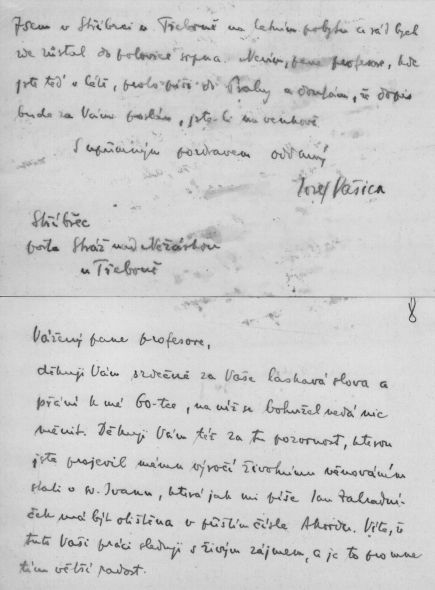 Jsem v Stříbřci u Třeboně na letním pobytu a rád bych
zde zůstal do polovice srpna. Nevím, pane profesore, kde
jste teď v létě, proto píši do Prahy a doufám, že dopis
bude za Vámi poslán, jste-li na venkově.
S upřímným pozdravem oddaný
Josef Vašica
Stříbřec
pošta Stráž nad Nežárkou
u Třeboně
8
Vážený pane profesore,
děkuji Vám srdečně za Vaše laskavá slova a
přání k mé 60-tce, na níž se bohužel nedá nic
měnit. Děkuji Vám též za tu pozornost, kterou
jste projevil mému výročí životnímu věnováním
stati o sv. Ivanu, která jak mi píše Jan Zahradní-
ček má být otištěna v příštím čísle Akordu. Víte, že
tuto Vaši práci sleduji s živým zájmem, a je to pro mne
tím větší radost.